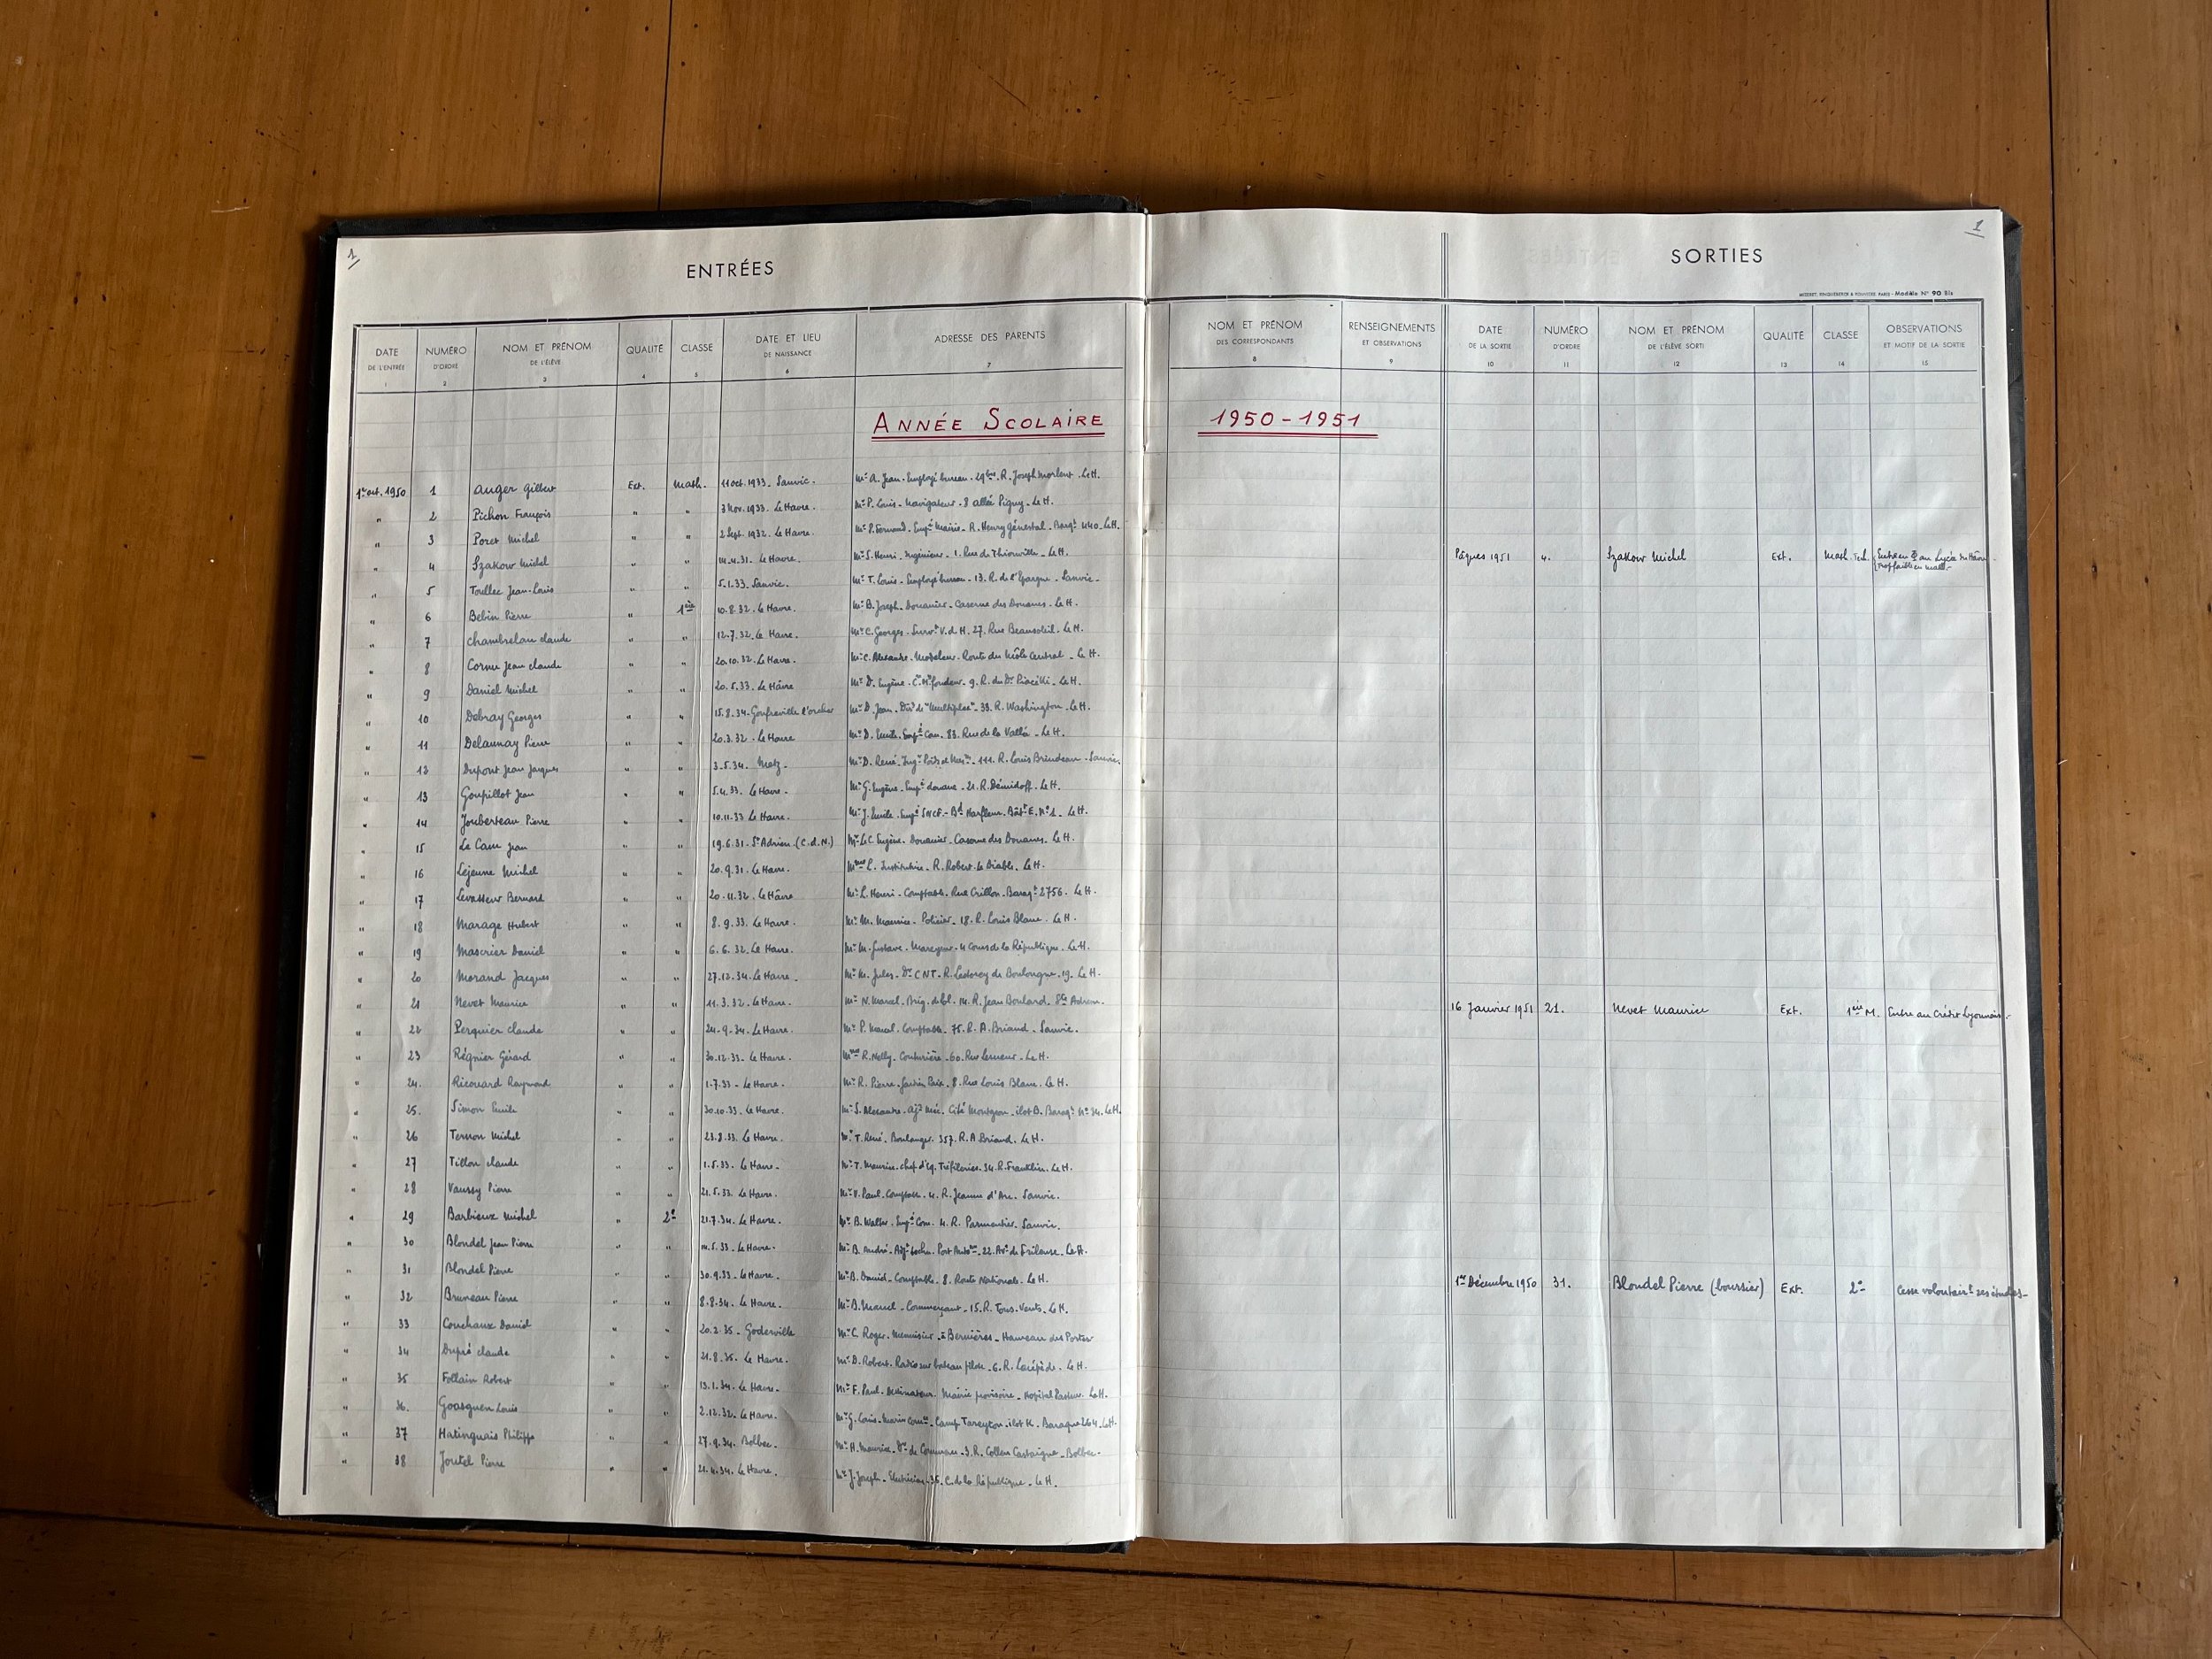 1
ENTRÉES
DATE DE L'ENTRÉE 1
NUMÉRO D'ORDRE 2
NOM ET PRÉNOM DE L'ÉLÈVE 3
QUALITÉ 4
CLASSE 5
DATE ET LIEU DE NAISSANCE 6
ADRESSE DES PARENTS 7
ANNÉE SCOLAIRE
1er oct. 1950 1 Auger Gilbert Ext. Math. 11 oct. 1933. Sanvic. Mr A. Jean. Employé bureau. 29bis R. Joseph Morlent. Le H.
" 2 Pichon François " " 3 Nov. 1933. Le Havre. Mr P. Louis. Navigateur. 8 allée Péguy. Le H.
" 3 Poret Michel " " 2 Sept. 1932. Le Havre. Mr P. Fernand. Empé Mairie. R. Henry Génestal. Baraqt 440. Le H.
" 4 Szakow Michel " " 14.4.31. Le Havre. Mr S. Henri. Ingénieur. 1. Rue de Thionville. Le H.
" 5 Toullec Jean-Louis " " 5.1.33. Sanvic. Mr T. Louis. Employé bureau. 13. R. de l'Epargne. Sanvic.
" 6 Bebin Pierre " 1ère 10.8.32. Le Havre. Mr B. Joseph. Douanier. Caserne des Douanes. Le H.
" 7 Chambrelan Claude " " 12.7.32. Le Havre. Mr C. Georges. Survt V. d H. 27. Rue Beausoleil. Le H.
" 8 Cornu Jean Claude " " 20.10.32. Le Havre. Mr C. Alexandre. Modeleur. Route du Môle Central. Le H.
" 9 Daniel Michel " " 20.5.33. Le Hâvre Mr D. Eugène. fondeur. 9. R. du Dr Le H.
" 10 Debray Georges " " 15.8.34. Gonfreville l'orcher Mr D. Jean. Dirr de "Multiplex". 33. R. Washington. Le H.
" 11 Delaunay Pierre " " 20.3.32. Le Havre Mr D. Emile. Empé Com. 83. Rue de la Vallée. Le H.
" 12 Dupont Jean Jacques " " 3.5.34. Metz. Mr D. René. Ingr 111. R. Louis Brindeau. Sanvic.
" 13 Goupillot Jean " " 5.4.33. Le Havre. Mr G. Eugène. Empé douane. 21. R. Démidoff. Le H.
" 14 Jouberteau Pierre " " 10.11.33 Le Havre. Mr J. Emile. Empé SNCF. Bd Harfleur. Bât E. No 1. Le H.
" 15 Le Cam Jean " " 19.6.31. St Adrien (C.d.N.) Mr Le C. Eugène. Douanier. Caserne des Douanes. Le H.
" 16 Lejeune Michel " " 20.9.31. Le Havre. Mme L. Institutrice. R. Robert le Diable. Le H.
" 17 Levasseur Bernard " " 20.11.32. Le Hâvre Mr L. Henri. Comptable. Rue Crillon. Baraqt 2756. Le H.
" 18 Marage Hubert " " 8.9.33. Le Havre. Mr M. Maurice. Policier. 18. R. Louis Blanc. Le H.
" 19 Mascrier Daniel " " 6.6.32. Le Havre. Mr M. Gustave. Mareyeur. 4 Cours de la République. Le H.
" 20 Morand Jacques " " 27.12.34. Le Havre. Mr M. Jules. Dr CNT. R. Ledorey de Boulongne. 19. Le H.
" 21 Nevet Maurice " " 11.3.32. Le Havre. Mr N. Marcel. 14. R. Jean Boulard. Ste Adresse.
" 22 Perquier Claude " " 24.9.34. Le Havre. Mr P. Marcel. Comptable. 75. R. A. Briand. Sanvic.
" 23 Régnier Gérard " " 30.12.33. Le Havre. Mme R. Nelly. Couturière. 60. Rue Lesueur. Le H.
" 24. Ricouard Raymond " " 1.7.33. Le Havre. Mr R. Pierre. 8. Rue Louis Blanc. Le H.
" 25. Simon Emile " " 30.10.33. Le Havre. Mr S. Alexandre. Cité Montgeon. ilot B. Baraqt No 34. Le H.
" 26 Ternon Michel " " 23.8.33. Le Havre Mr T. René. Boulanger. 357. R. A Briand. Le H.
" 27 Tillon Claude " " 1.5.33. Le Havre. Mr T. Maurice. chef d'éq. Tréfileries. 34. R. Franklin. Le H.
" 28 Vaussy Pierre " " 21.5.33. Le Havre. Mr V. Paul. Comptable. 4. R. Jeanne d'Arc. Sanvic.
" 29 Barbieux Michel " 2e 21.7.34. Le Havre. Mr B. Walter. Empé Com. 4. R. Parmentier. Sanvic.
" 30 Blondel Jean Pierre " " 14.5.33. Le Havre. Mr B. André. Port Autme. 22. Av. de Frileuse. Le H.
" 31 Blondel Pierre " " 30.9.33. Le Havre. Mr B. David. Comptable. 8. Route Nationale. Le H.
" 32 Bruneau Pierre " " 8.8.34. Le Havre. Mr B. Marcel. Commerçant. 15. R. Tous-Vents. Le H.
" 33 Couchaux David " " 20.2.35. Goderville Mr C. Roger. Menuisier à Bernières. Hameau des Portes
" 34 Dupré Claude " " 21.8.35. Le Havre. Mr D. Robert. Radio sur bateau pilote. 6. R. Lacépède. Le H.
" 35 Follain Robert " " 13.1.34. Le Havre. Mr F. Paul. Mairie provisoire. Hôpital Pasteur. Le H.
" 36. Goasguen Louis " " 2.12.32. Le Havre. Mr G. Louis. Marin Comce. Camp Tareyton. ilot K. Baraque L64. Le H.
" 37 Hatinguais Philippe " " 27.9.34. Bolbec. Mr H. Maurice. 3. R. Collen Castaigne. Bolbec.
" 38 Joutel Pierre " " 21.4.34. Le Havre. Mr J. Joseph. Electricien. 35. C. de la République. Le H.
1
SORTIES
Modèle N° 90 Bis
NOM ET PRÉNOM DES CORRESPONDANTS 8
RENSEIGNEMENTS ET OBSERVATIONS 9
DATE DE LA SORTIE 10
NUMÉRO D'ORDRE 11
NOM ET PRÉNOM DE L'ÉLÈVE SORTI 12
QUALITÉ 13
CLASSE 14
OBSERVATIONS ET MOTIF DE LA SORTIE 15
1950 - 1951
Pâques 1951 4. Szakow Michel Ext. Math. Tech. Entre en au Lycée du Hâvre
trop faible en math.
16 Janvier 1951 21. Nevet Maurice Ext. 1ère M. Entre au Crédit Lyonnais.
1er Décembre 1950 31. Blondel Pierre (boursier) Ext. 2e Cesse volontairt ses études